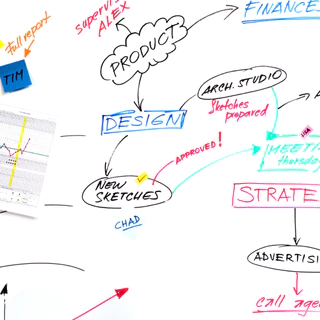 supervis
ALEX
FINANCE
full report
TIM
PRODUCT
ARCH.STUDIO
Sketches
prepared
DESIGN
APPROVED!
MEETI
thursda
NEW
SKETCHES
CHAD
STRATE
ADVERTISI
call age